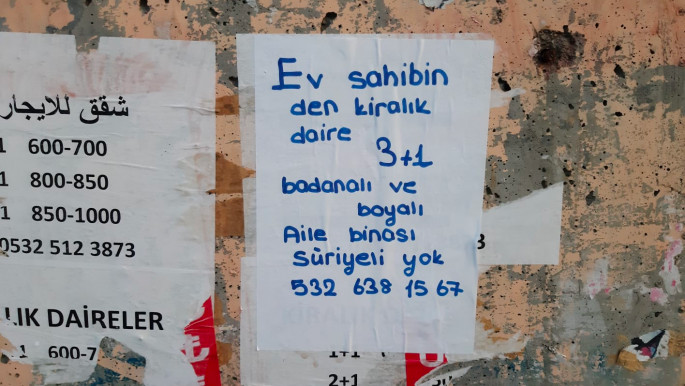 شقق للايجار
1 600-700
1 800-850
1 850-1000
0532 512 3873
LIK DAİRELER
1 600-7
Ev sahibin
den kiralık
daire
3+1
badanalı ve
boyalı
Aile binası
Sûriyeli yok
532 638 15 67
3
1+1
2+1